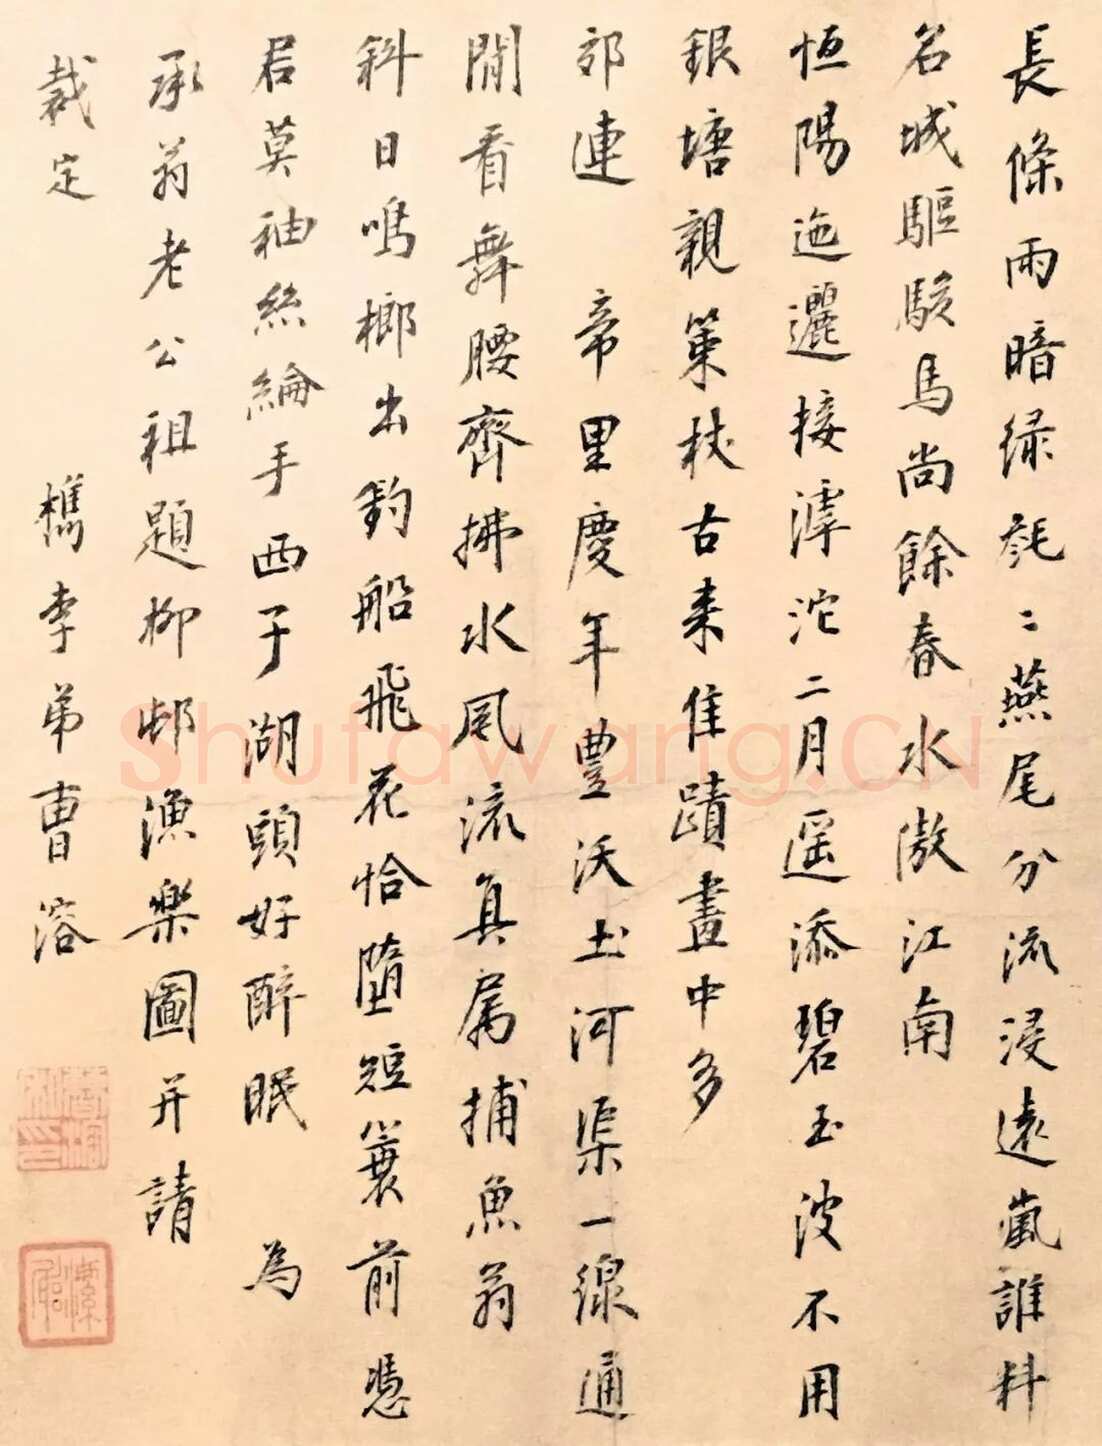 長條雨暗綠毿〻燕尾分流浸遠嵐誰料
名城驅駿馬尚餘春水傲江南
恒陽迤邐接滹沱二月遥添碧玉波不用
銀塘親策杖古来佳蹟畫中多
郊連 帝里慶年豐沃土河渠一線通
閒看舞腰齊拂水風流真属捕魚翁
斜日鳴榔出釣船飛花恰墮短簑前憑
君莫袖絲綸手西子湖頭好醉眠 為
承翁老公祖題柳邨漁樂圖并請
裁定 檇李弟曹溶
Shufawang.CN